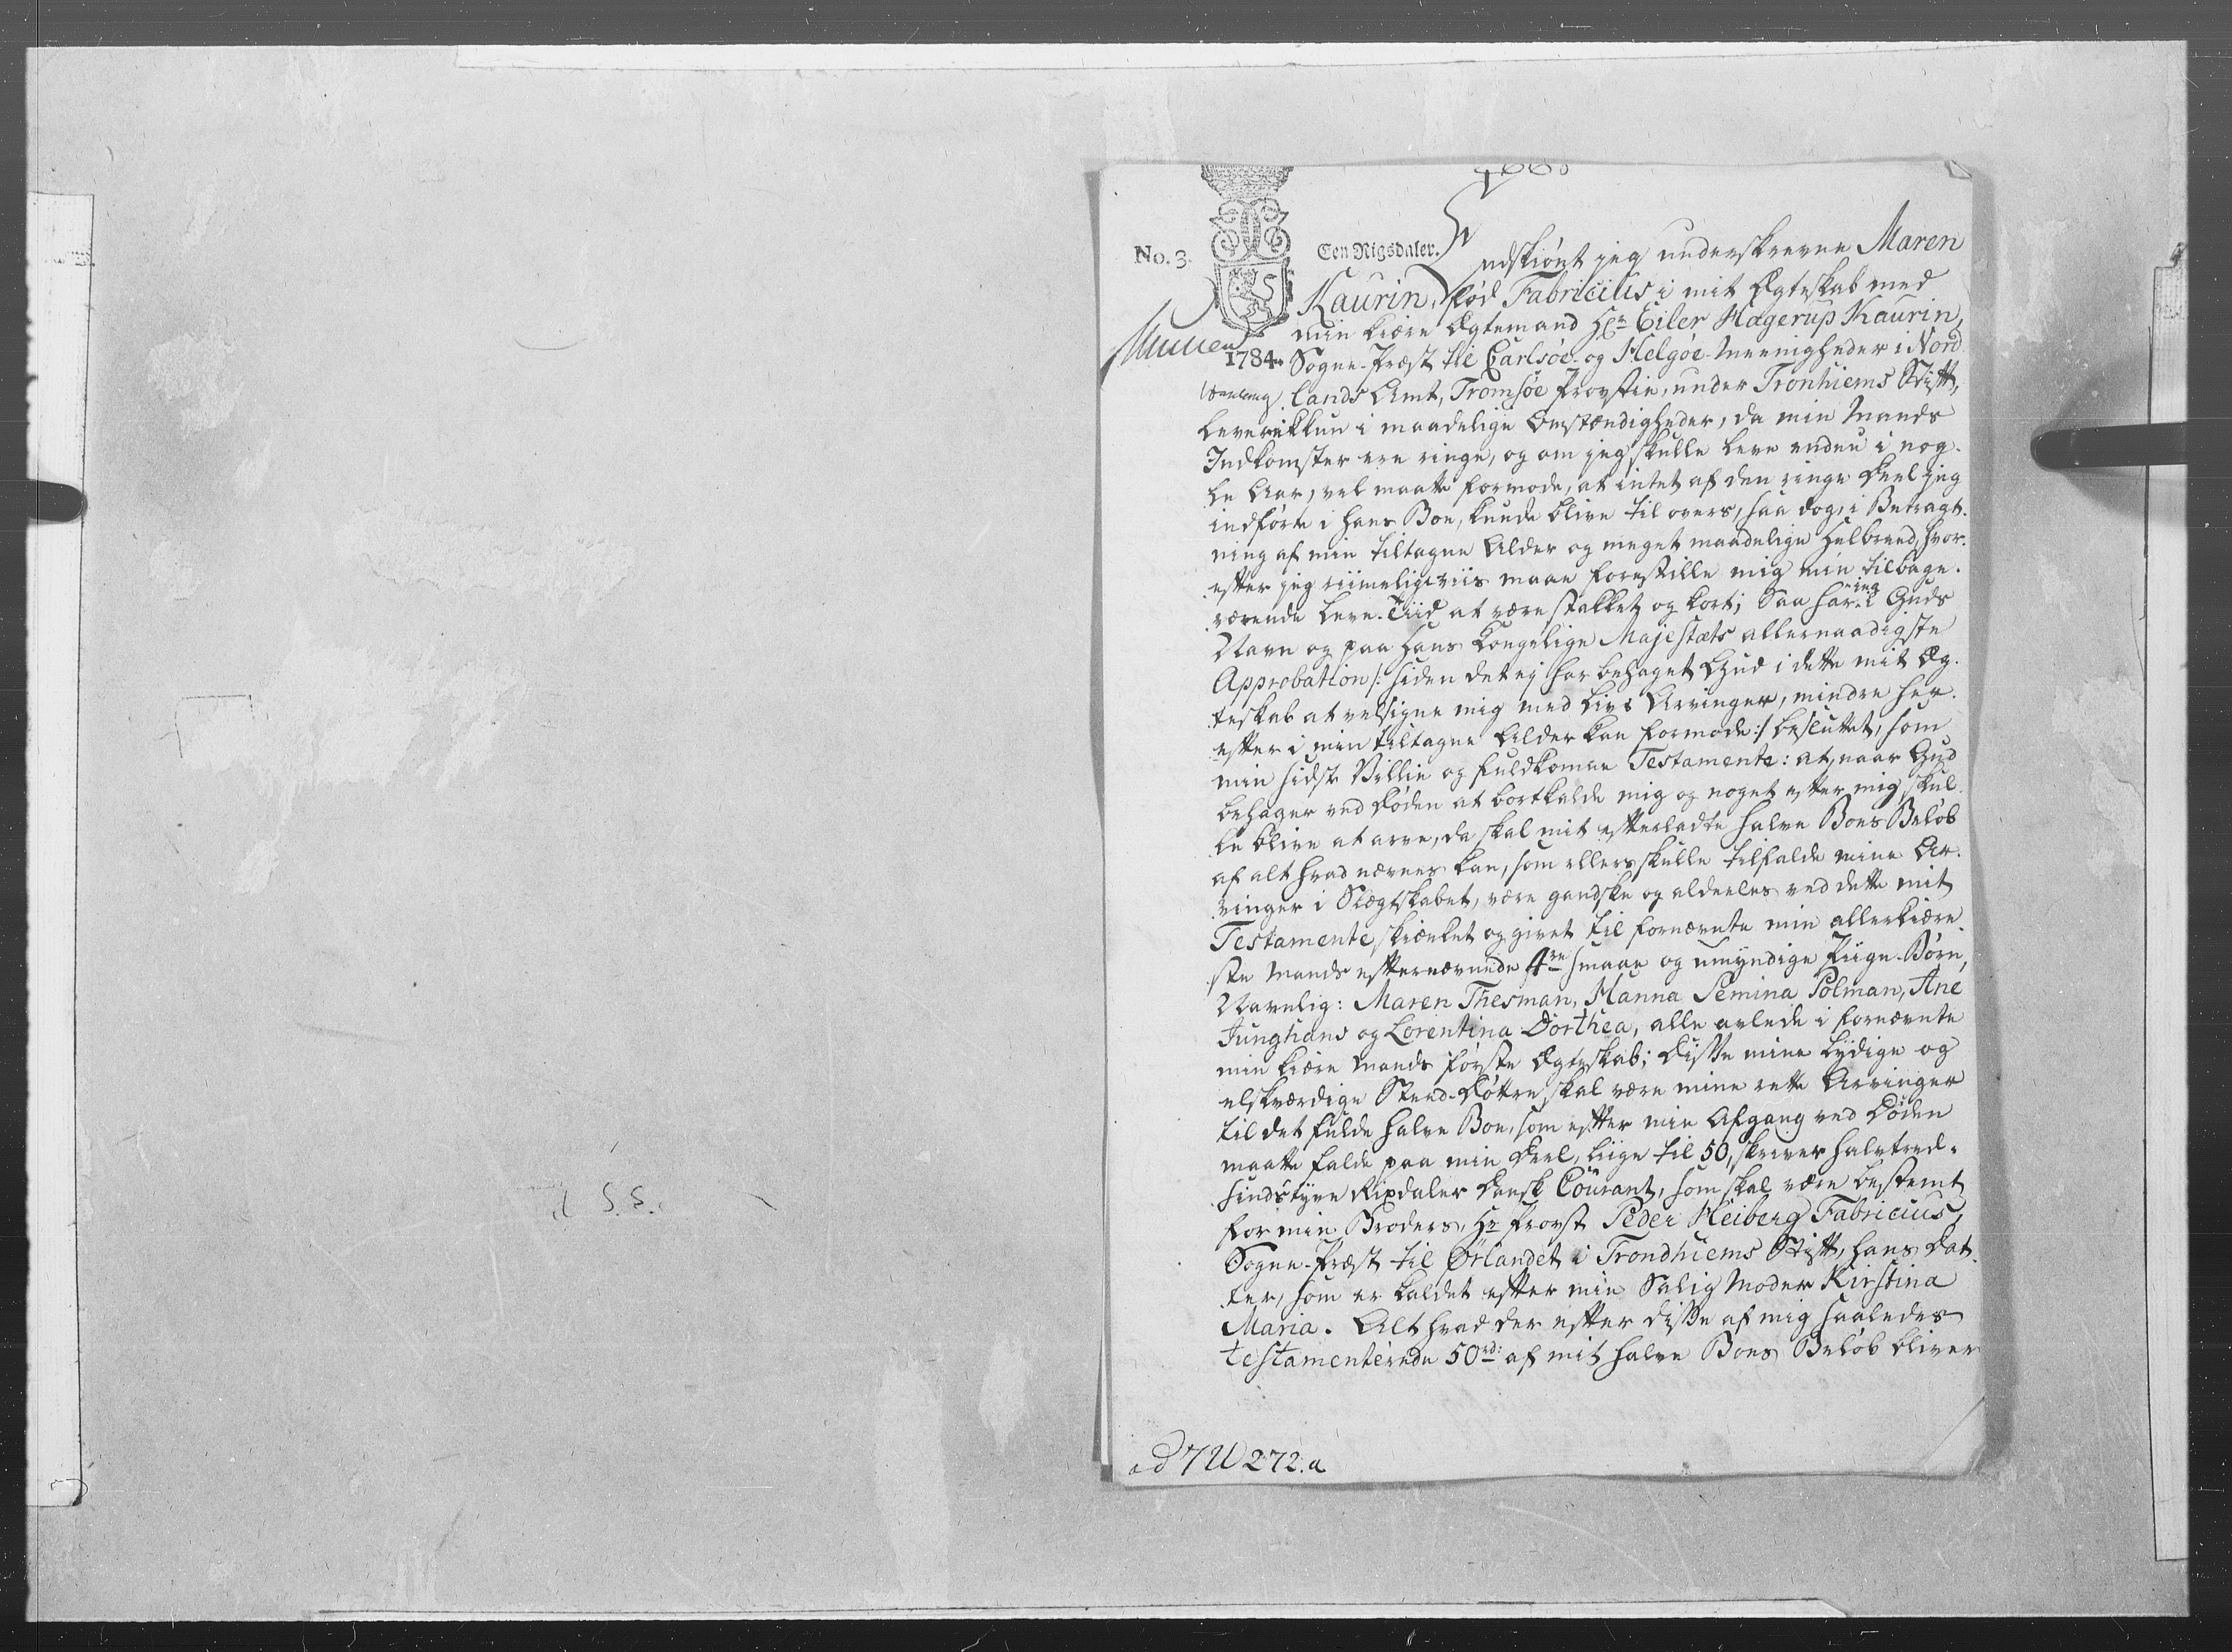 No. 3.
Een Rigsdaler.
1784.
Endskiønt jeg underskrevne Maren
Kaurin, fød Fabricius i mit Ægteskab med
min kiære Ægtemand Hr. Eiler Hagerup Kaurin,
Sogne-Præst til Carlsøe- og Helgøe-Meenigheder i Nord
lands Amt, Tromsøe Provstie, under Tronhiems Stift,
lever ikkun i maadelige Omstændigheder, da min Mands
Indkomster ere ringe, og om jeg skulle leve endnu i nog-
le Aar, vel maatte formode, at intet af den ringe Deel jeg
indførte i hans Boe, kunde blive til overs, saa dog, i Betragt-
ning af min tiltagne Alder og meget maadelige Helbreed, hvor-
efter jeg riimeligviis maae forestille mig min tilbage-
værende Leve-Tiid at være stakket og kort; Saa har jeg i Guds
Navn og paa Hans Kongelige Majestæts allernaadigste
Approbation /: siden det ej har behaget Gud i dette mit Æg-
teskab at velsigne mig med Livs Arvinger, mindre her-
efter i min tiltagne Alder kan formode :/ besluttet, som
min sidste Villie og fuldkomne Testamente: at, naar Gud
behager ved Døden at bortkalde mig og noget efter mig skul-
le blive at arve, da skal mit efterladte halve Boes Beløb
af alt hvad nævnes kan, som ellers skulle tilfalde mine Ar-
vinger i Slægtskabet, være gandske og aldeeles ved dette mit
Testamente skiænket og givet til fornævnte min allerkiære-
ste Mands efternævnede 4re smaae og umyndige Piige-Børn,
Navnlig: Maren Thesman, Hanna Pemina Polman, Ane
Junghans og Lorentina Dorthea, alle avlede i fornævnte
min kiære Mands første Ægteskab; Disse mine lydige og
elskværdige Steed-Døttre skal være mine rette Arvinger
til det fulde halve Boe, som efter min Afgang ved Døden
maatte falde paa min Deel, liige til 50, skriver halvtred-
sindstyve Rixdaler Dansk Courant, som skal være bestemt
for min Broders, Hr. Provst Peder Heiberg Fabricius,
Sogne-Præst til Ørlandet i Trondhiems Stift, hans Dat-
ter, som er kaldet efter min Salig Moder Kirstina
Maria. Alt hvad der efter disse af mig saaledes
testamenterede 50rd: af mit halve Boes Beløb bliver
ad 7U 272.a